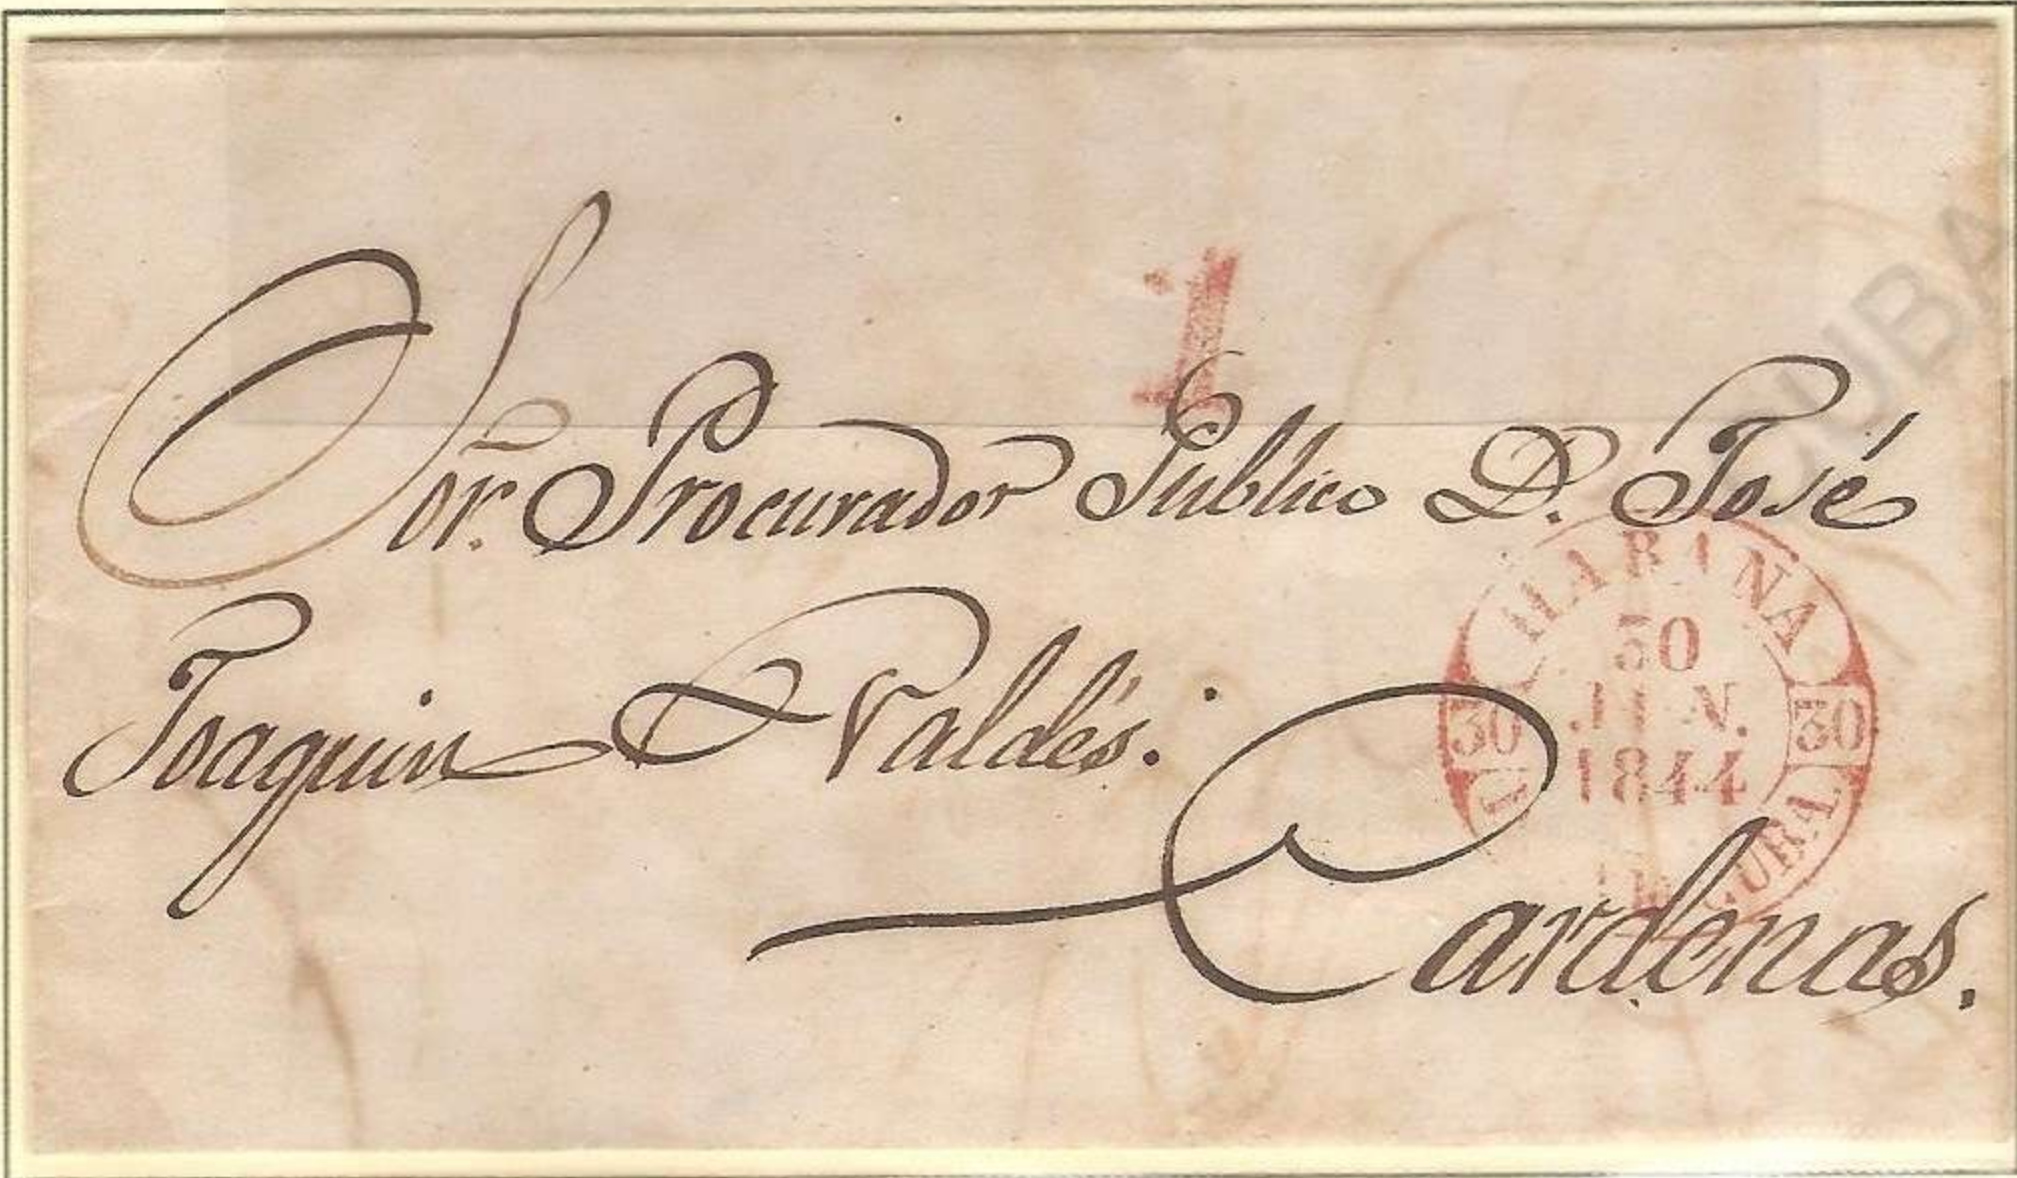 1
Sor. Procurador Publico D. José
Joaquin Valdés.
Cardenas.
HABANA
30
JUN.
1844
30 30
CUBA
CUBA